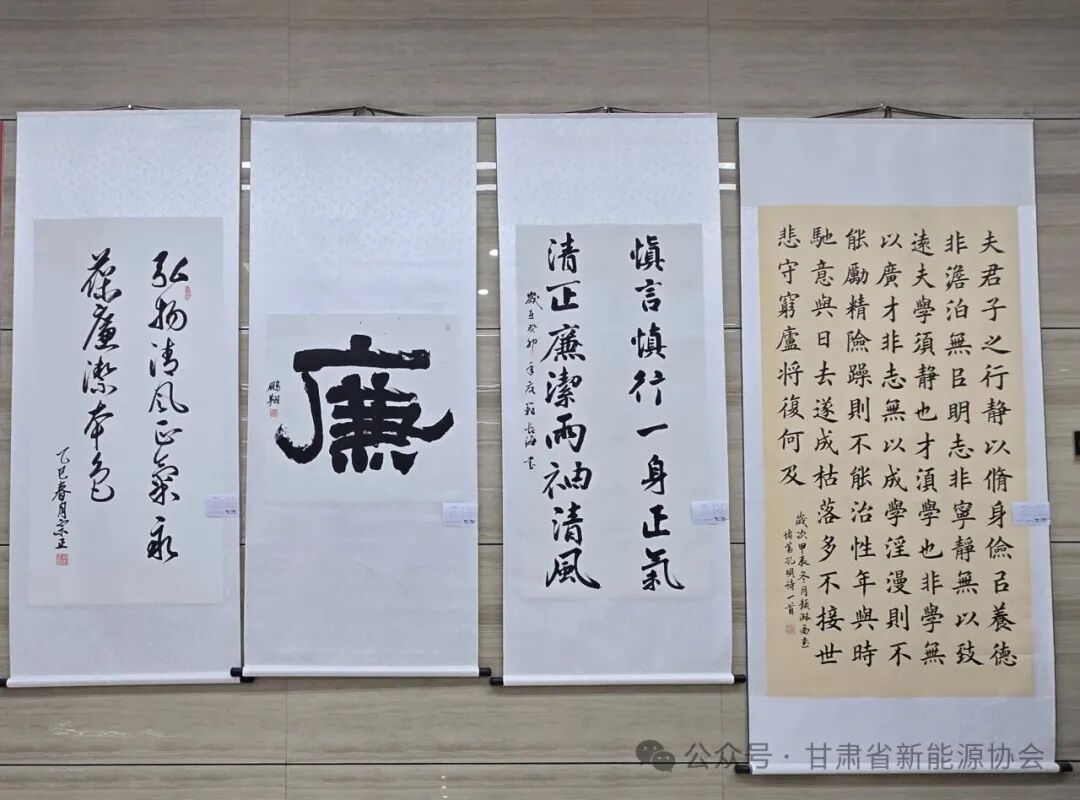 弘扬清风正氣永
葆廉潔本色
乙巳春月宗正
廉
鵬翔
慎言慎行一身正氣
清正廉潔兩袖清風
歲在癸卯年夏 長海書
夫君子之行静以脩身儉㠯養德
非澹泊無㠯明志非寧静無以致
遠夫學須静也才湏學也非學無
以廣才非志無以成學淫漫則不
能勵精險躁則不能治性年與時
馳意與日去遂成枯落多不接世
悲守窮廬將復何及
歲次甲辰冬月 西書
诸葛孔明诗一首
公众号·甘肃省新能源协会